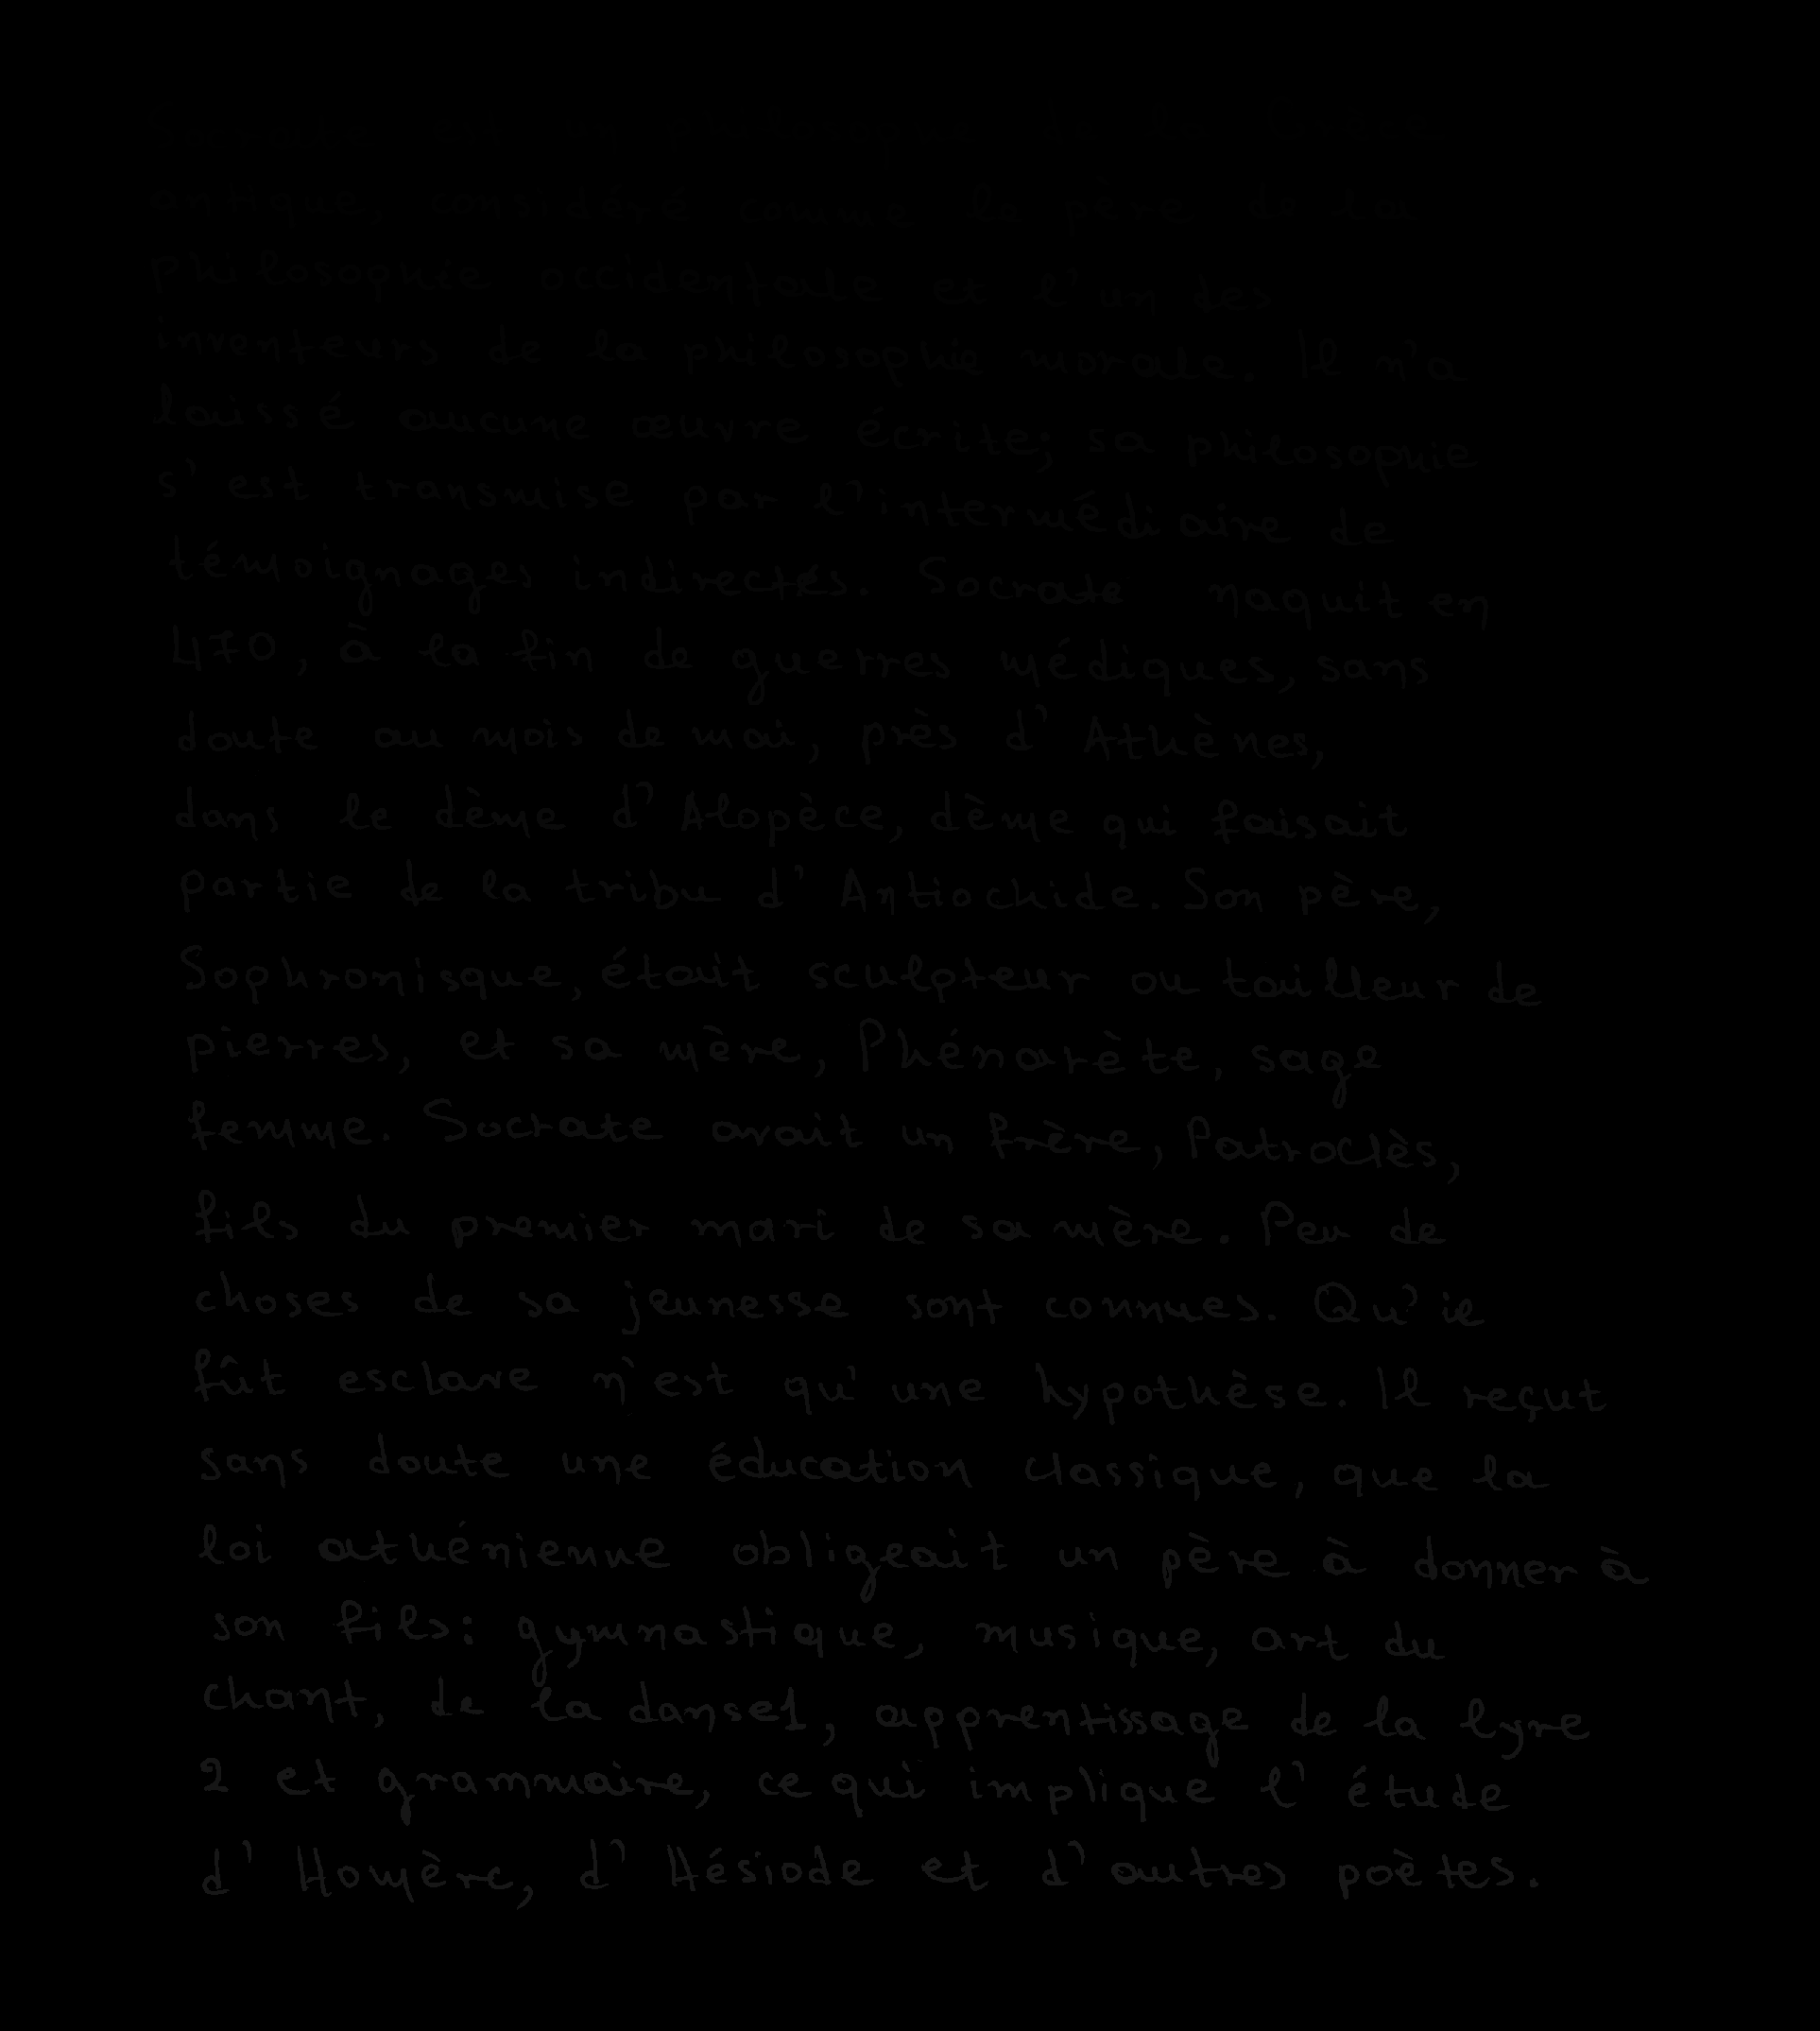 antique, considéré comme le père de la
philosophie occidentale et l'un des
inventeurs de la philosophie morale. Il n'a
laissé aucune œuvre écrite; sa philosophie
s'est transmise par l'intermédiaire de
témoignages indirectes. Socrate naquit en
470, à la fin de guerres médiques, sans
doute au mois de mai, près d'Athènes,
dans le dème d'Alopèce, dème qui faisait
partie de la tribu d'Antiochide. Son père,
Sophronisque, était sculpteur ou tailleur de
pierres, et sa mère, Phénarète, sage
femme. Socrate avait un frère, Patroclès,
fils du premier mari de sa mère. Peu de
choses de sa jeunesse sont connues. Qu'il
fût esclave n'est qu'une hypothèse. Il reçut
sans doute une éducation classique, que la
loi athénienne obligeait un père à donner à
son fils: gymnastique, musique, art du
chant, de la danse1, apprentissage de la lyre
2 et grammaire, ce qui implique l'étude
d'Homère, d'Hésiode et d'autres poètes.